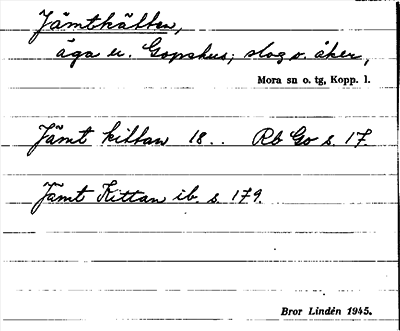 Jämtkätten,
äga u. Gopshus; slog o. åker,
Mora sn o. tg, Kopp. l.
Jämt kittan 18.. Rb Go s. 17.
Jämt Kittan ib. s. 179.
Bror Lindén 1945.